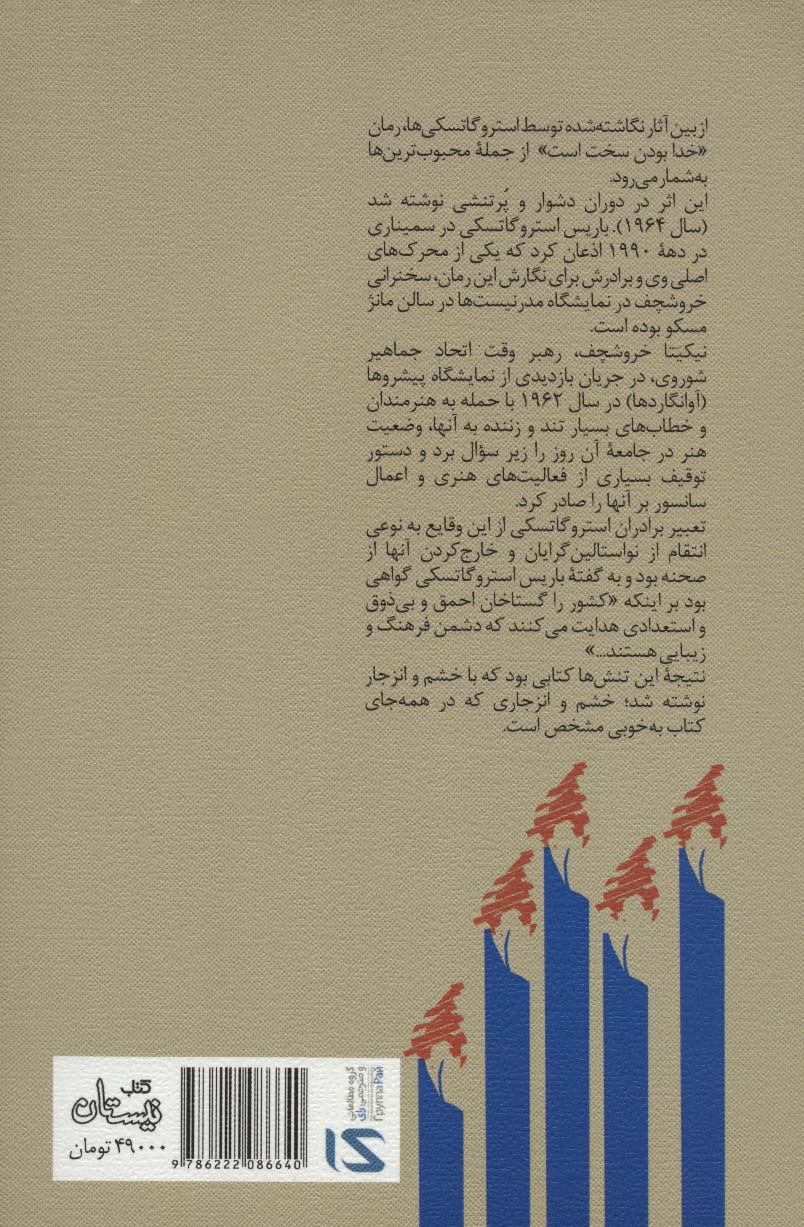 از بین آثار نگاشته‌شده توسط استروگاتسکی‌ها، رمان
«خدا بودن سخت است» از جملهٔ محبوب‌ترین‌ها
به‌شمار می‌رود.
این اثر در دوران دشوار و پُرتنشی نوشته شد
(سال ۱۹۶۴). باریس استروگاتسکی در سمیناری
در دههٔ ۱۹۹۰ اذعان کرد که یکی از محرک‌های
اصلی وی و برادرش برای نگارش این رمان، سخنرانی
خروشچف در نمایشگاه مدرنیست‌ها در سالن مانژ
مسکو بوده است.
نیکیتا خروشچف، رهبر وقت اتحاد جماهیر
شوروی، در جریان بازدیدی از نمایشگاه پیشروها
(آوانگاردها) در سال ۱۹۶۲ با حمله به هنرمندان
و خطاب‌های بسیار تند و زننده به آنها، وضعیت
هنر در جامعهٔ آن روز را زیر سؤال برد و دستور
توقیف بسیاری از فعالیت‌های هنری و اعمال
سانسور بر آنها را صادر کرد.
تعبیر برادران استروگاتسکی از این وقایع به نوعی
انتقام از نواستالین‌گرایان و خارج‌کردن آنها از
صحنه بود و به گفتهٔ باریس استروگاتسکی گواهی
بود بر اینکه «کشور را گستاخان احمق و بی‌ذوق
و استعدادی هدایت می‌کنند که دشمن فرهنگ و
زیبایی هستند...»
نتیجهٔ این تنش‌ها کتابی بود که با خشم و انزجار
نوشته شد؛ خشم و انزجاری که در همه‌جای
کتاب به‌خوبی مشخص است.
گروه مطالعاتی
و مترجمی رای
Группа Рай
کتاب
نیستان
۴۹۰۰۰ تومان
9 786222 086640